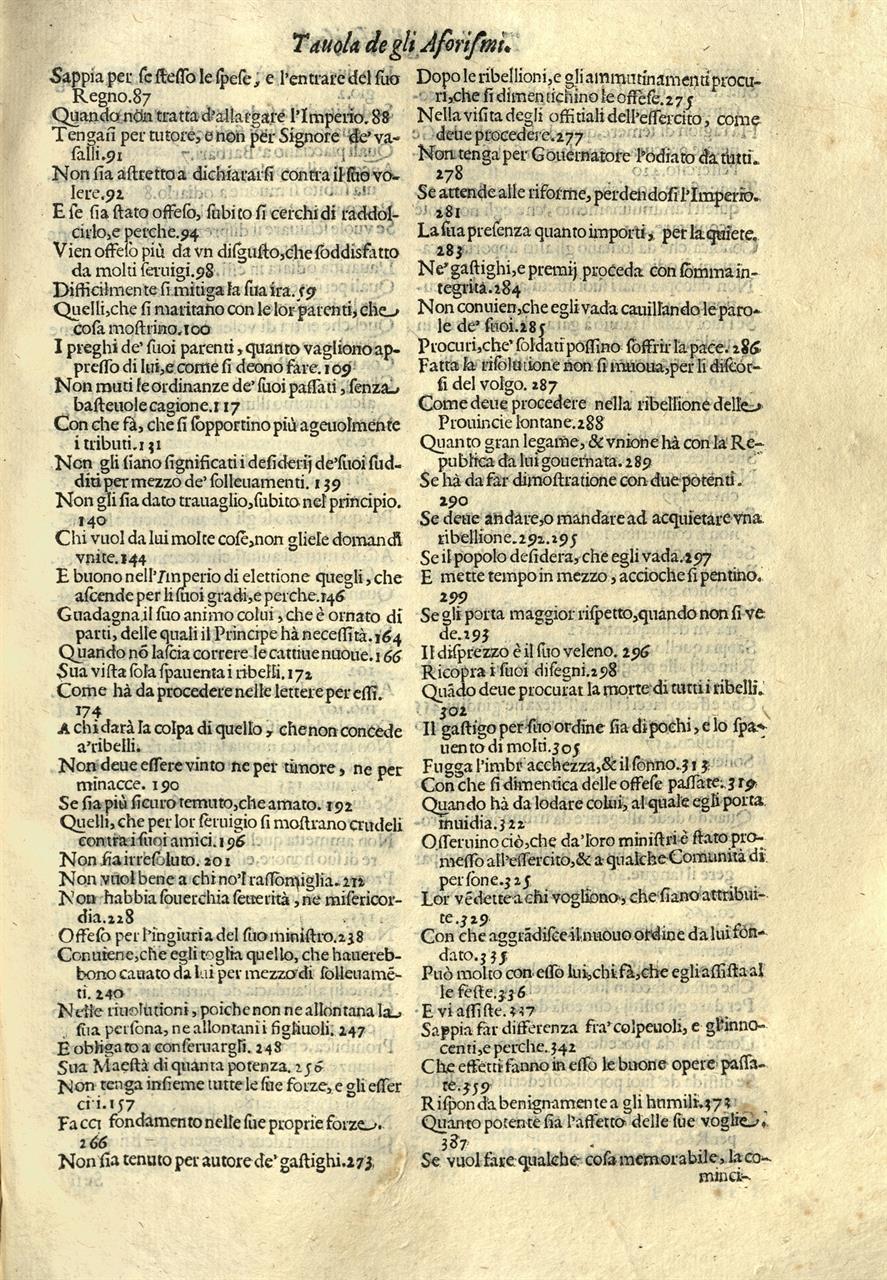 Tauola de gli Aforiſmi.
Sappia per ſe ſteſſo le ſpeſe, e l'entrare del ſuo
Regno.87
Quando non tratta d'allargare l'Imperio. 88
Tengaſi per tutore, e non per Signore de' va-
ſalli.91
Non ſia aſtretto a dichiararſi contra il ſuo vo-
lere.92
E ſe ſia ſtato offeſo, ſubito ſi cerchi di raddol-
cirlo,e perche.94
Vien offeſo più da vn diſguſto,che ſoddisfatto
da molti ſeruigi.98
Difficilmente ſi mitiga la ſua ira.59
Quelli,che ſi maritano con le lor parenti, che
coſa moſtrino.100
I preghi de' ſuoi parenti, quanto vagliono ap-
preſſo di lui,e come ſi deono fare.109
Non muti le ordinanze de' ſuoi paſſati, ſenza
baſteuole cagione.117
Con che fà, che ſi ſopportino più ageuolmente
i tributi.131
Non gli ſiano ſignificati i deſiderij de'ſuoi ſud-
diti per mezzo de' ſolleuamenti. 139
Non gli ſia dato trauaglio,ſubito nel principio.
140
Chi vuol da lui molte coſe,non gliele domandi
vnite.144
E buono nell'Imperio di elettione quegli, che
aſcende per li ſuoi gradi,e perche.146
Guadagna il ſuo animo colui, che è ornato di
parti, delle quali il Principe hà neceſſità.164
Quando nō laſcia correre le cattiue nuoue.166
Sua viſta ſola ſpauenta i ribelli.172
Come hà da procedere nelle lettere per eſſi.
174
A chi darà la colpa di quello, che non concede
a'ribelli.
Non deue eſſere vinto ne per timore, ne per
minacce. 190
Se ſia più ſicuro temuto,che amato. 192
Quelli, che per lor ſeruigio ſi moſtrano crudeli
contra i ſuoi amici.196
Non ſia irreſoluto. 201
Non vuol bene a chi no'l raſſomiglia.212
Non habbia ſouerchia ſeuerità, ne miſericor-
dia.228
Offeſo per l'ingiuria del ſuo miniſtro.238
Conuiene,che egli toglia quello, che hauereb-
bono cauato da lui per mezzo di ſolleuamē-
ti. 240
Nelle riuolutioni, poiche non ne allontana la
ſua perſona, ne allontani i figliuoli. 247
E obligato a conſeruargli. 248
Sua Maeſtà di quanta potenza. 256
Non tenga inſieme tutte le ſue forze, e gli eſſer
citi.157
Facci fondamento nelle ſue proprie forze.
266
Non ſia tenuto per autore de' gaſtighi.273
Dopo le ribellioni,e gli ammutinamenti procu-
ri,che ſi dimentichino le offeſe.275
Nella viſita degli offitiali dell'eſſercito, come
deue procedere.277
Non tenga per Gouernatore l'odiato da tutti.
278
Se attende alle riforme, perdendoſi l'Imperio.
281
La ſua preſenza quanto importi, per la quiete.
283
Ne' gaſtighi,e premij proceda con ſomma in-
tegrità.284
Non conuien,che egli vada cauillando le paro-
le de' ſuoi.285
Procuri,che' ſoldati poſſino ſoffrir la pace. 286
Fatta la riſolutione non ſi muoua,per li diſcor-
ſi del volgo. 287
Come deue procedere nella ribellione delle
Prouincie lontane.288
Quanto gran legame, & vnione hà con la Re-
publica da lui gouernata. 289
Se hà da far dimoſtratione con due potenti.
290
Se deue andare,o mandare ad acquietare vna
ribellione.292.295
Se il popolo deſidera, che egli vada.297
E mette tempo in mezzo, accioche ſi pentino.
299
Se gli porta maggior riſpetto,quando non ſi ve
de.293
Il diſprezzo è il ſuo veleno. 296
Ricopra i ſuoi diſegni.298
Quādo deue procurat la morte di tutti i ribelli.
302
Il gaſtigo per ſuo ordine ſia di pochi, e lo ſpa-
uento di molti.305
Fugga l'imbr acchezza,& il ſonno.313
Con che ſi dimentica delle offeſe paſſate.319
Quando hà da lodare colui, al quale egli porta
inuidia.322
Oſſeruino ciò,che da'loro miniſtri è ſtato pro-
meſſo all'eſſercito,& a qualche Comunità di
perſone.325
Lor vēdette a chi vogliono, che ſiano attribui-
te.329
Con che aggrādiſce il nuouo ordine da lui fon-
dato.335
Può molto con eſſo lui,chi fà,che egli aſſiſta al
le feſte.336
E vi aſſiſte.337
Sappia far differenza fra' colpeuoli, e gl'inno-
centi,e perche.342
Che effetti fanno in eſſo le buone opere paſſa-
te.359
Riſponda benignamente a gli humili.373
Quanto potente ſia l'affetto delle ſue voglie.
387
Se vuol fare qualche coſa memorabile, la co-
minci-